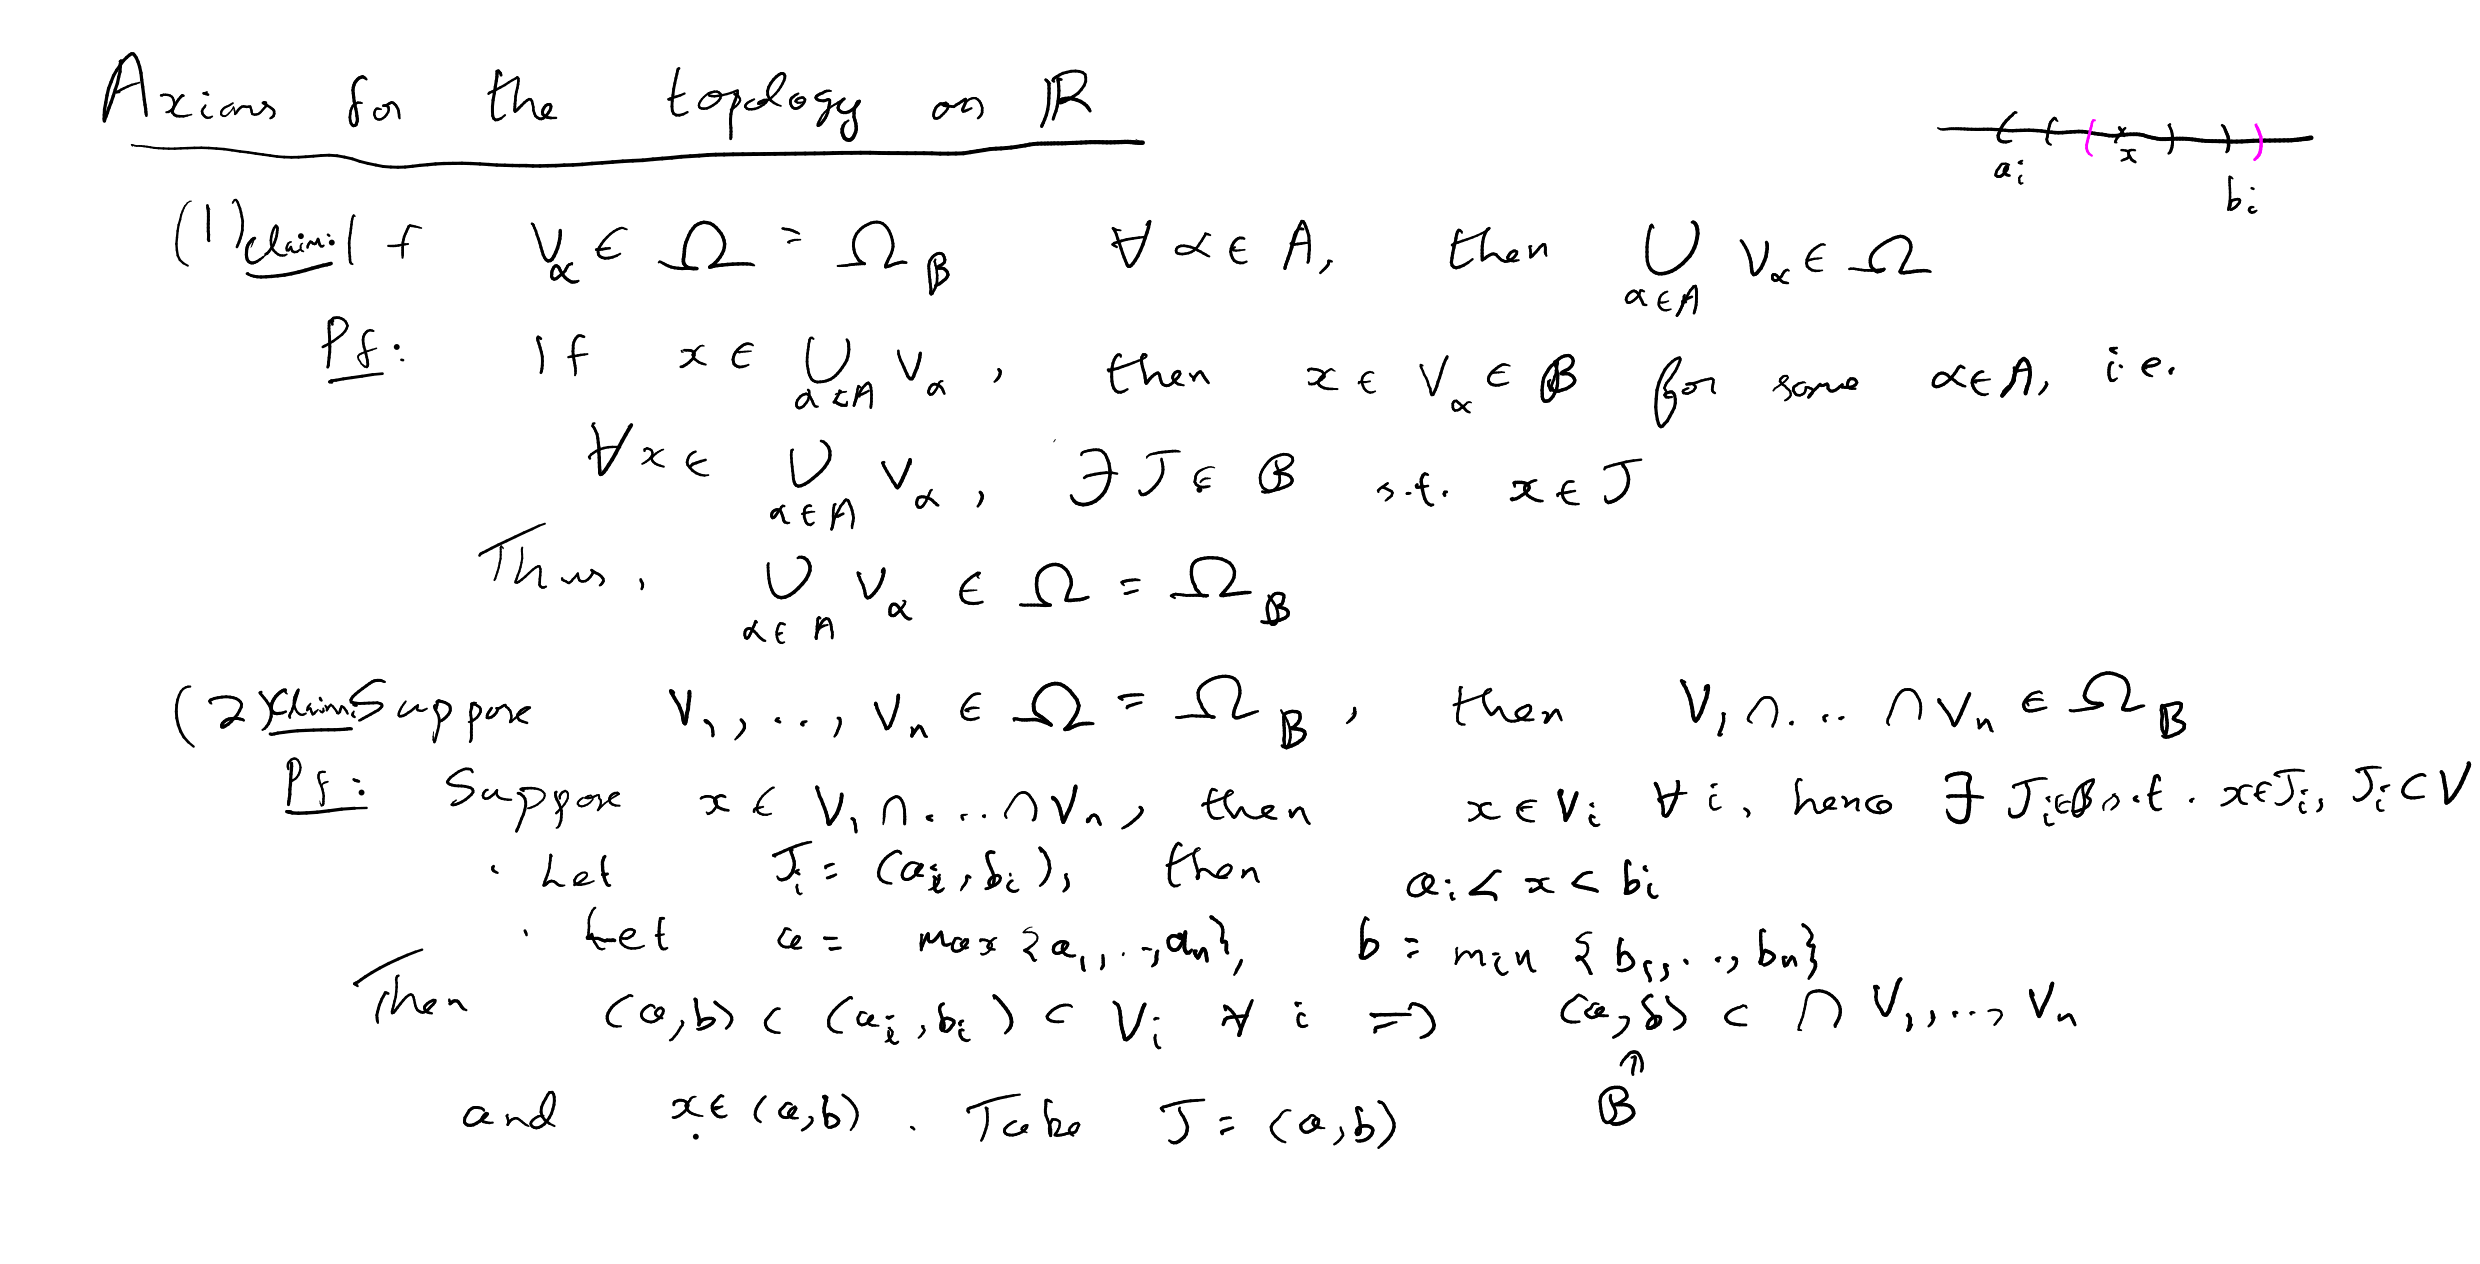 Axioms for the topology on ℝ
( x ) )
a_i
b_i
(1) Claim: If V_α ∈ Ω = Ω_𝔹 ∀ α ∈ A, then ⋃_{α∈A} V_α ∈ Ω
Pf: If x ∈ ⋃_{α∈A} V_α, then x ∈ V_α ∈ 𝔹 for some α ∈ A, i.e.
∀ x ∈ ⋃_{α∈A} V_α, ∃ J ∈ 𝔹 s.t. x ∈ J
Thus, ⋃_{α∈A} V_α ∈ Ω = Ω_𝔹
(2) Claim: Suppose V_1, .., V_n ∈ Ω = Ω_𝔹, then V_1 ∩ ... ∩ V_n ∈ Ω_𝔹
Pf: Suppose x ∈ V_1 ∩ ... ∩ V_n, then x ∈ V_i ∀ i, hence ∃ J_i ∈ 𝔹 s.t. x ∈ J_i, J_i ⊂ V
· Let J_i = (a_i, b_i), then a_i < x < b_i
· Let a = max {a_1, .., a_n}, b = min {b_1, .., b_n}
Then (a,b) ⊂ (a_i, b_i) ⊂ V_i ∀ i ⇒ (a,b) ⊂ ∩ V_1, ..., V_n
𝔹
and x ∈ (a,b). Take J = (a,b)